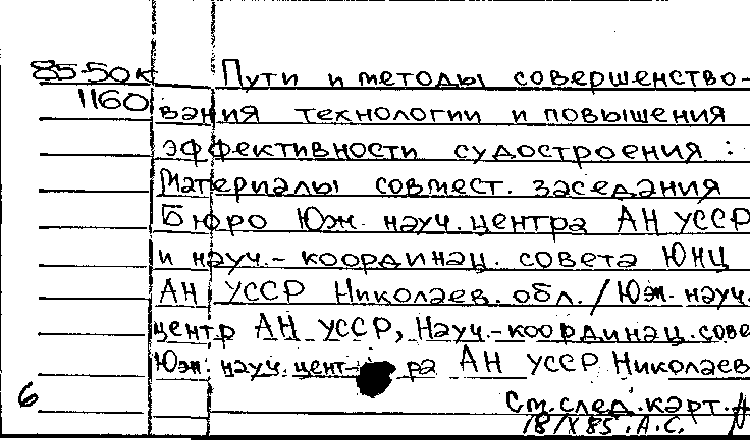 85-50к Пути и методы совершенство-
1160 вания технологии и повышения
эффективности судостроения :
Материалы совмест. заседания
Бюро Юж. науч. центра АН УССР
и науч.-координац. совета ЮНЦ
АН УССР Николаев. обл. / Юж. науч.
центр АН УССР, Науч.-координац. сове
Юж. науч. цент- ра АН УССР Николаев
6 См. след. карт.
18/X 85. А.С.